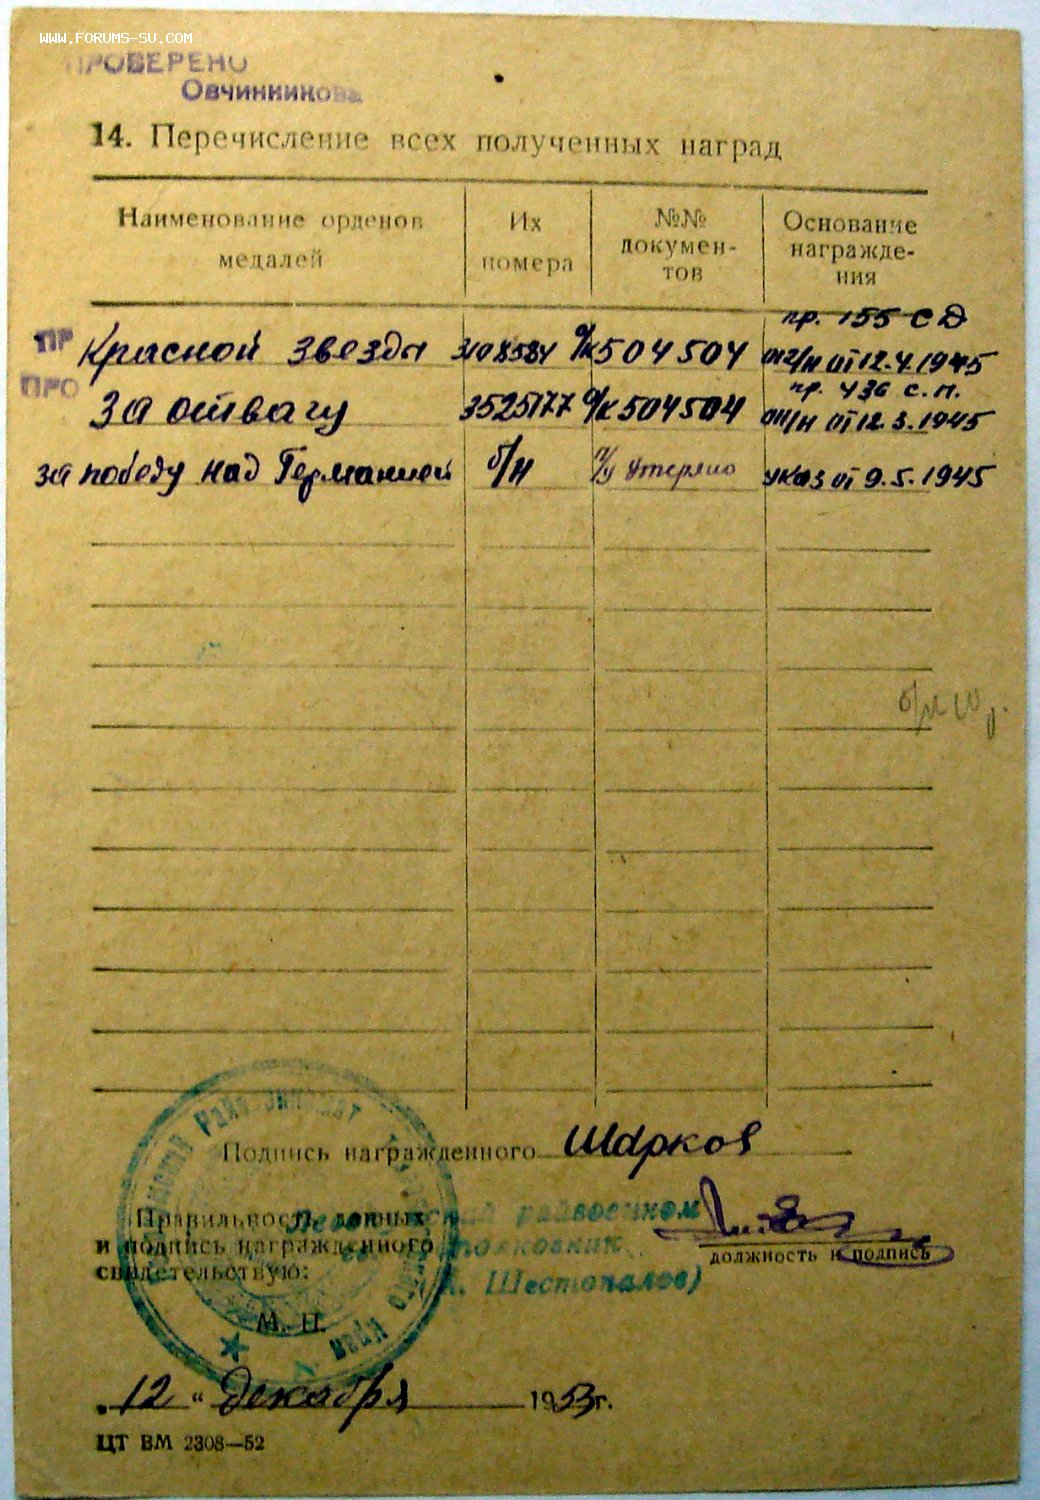 WWW.FORUMS-SU.COM
ПРОВЕРЕНО
Овчинникова
14. Перечисление всех полученных наград
Наименование орденов медалей
Их номера
№№ докумен-тов
Основание награжде-ния
пр. 155 СД
ПР Красной звезды 3108584 о/к 504504 от 12.4.1945
ПРО
пр. 436 с.п.
За отвагу 3525177 о/к 504504 от 12.3.1945
за победу над Германией б/н утеряно указ от 9.5.1945
Подпись награжденного Шарков
Правильность данных райвоенком
и подпись награжденного полковник должность и подпись
свидетельствую: Шестопалов)
М. П.
"12 " декабря 1953г.
ЦТ ВМ 2308—52